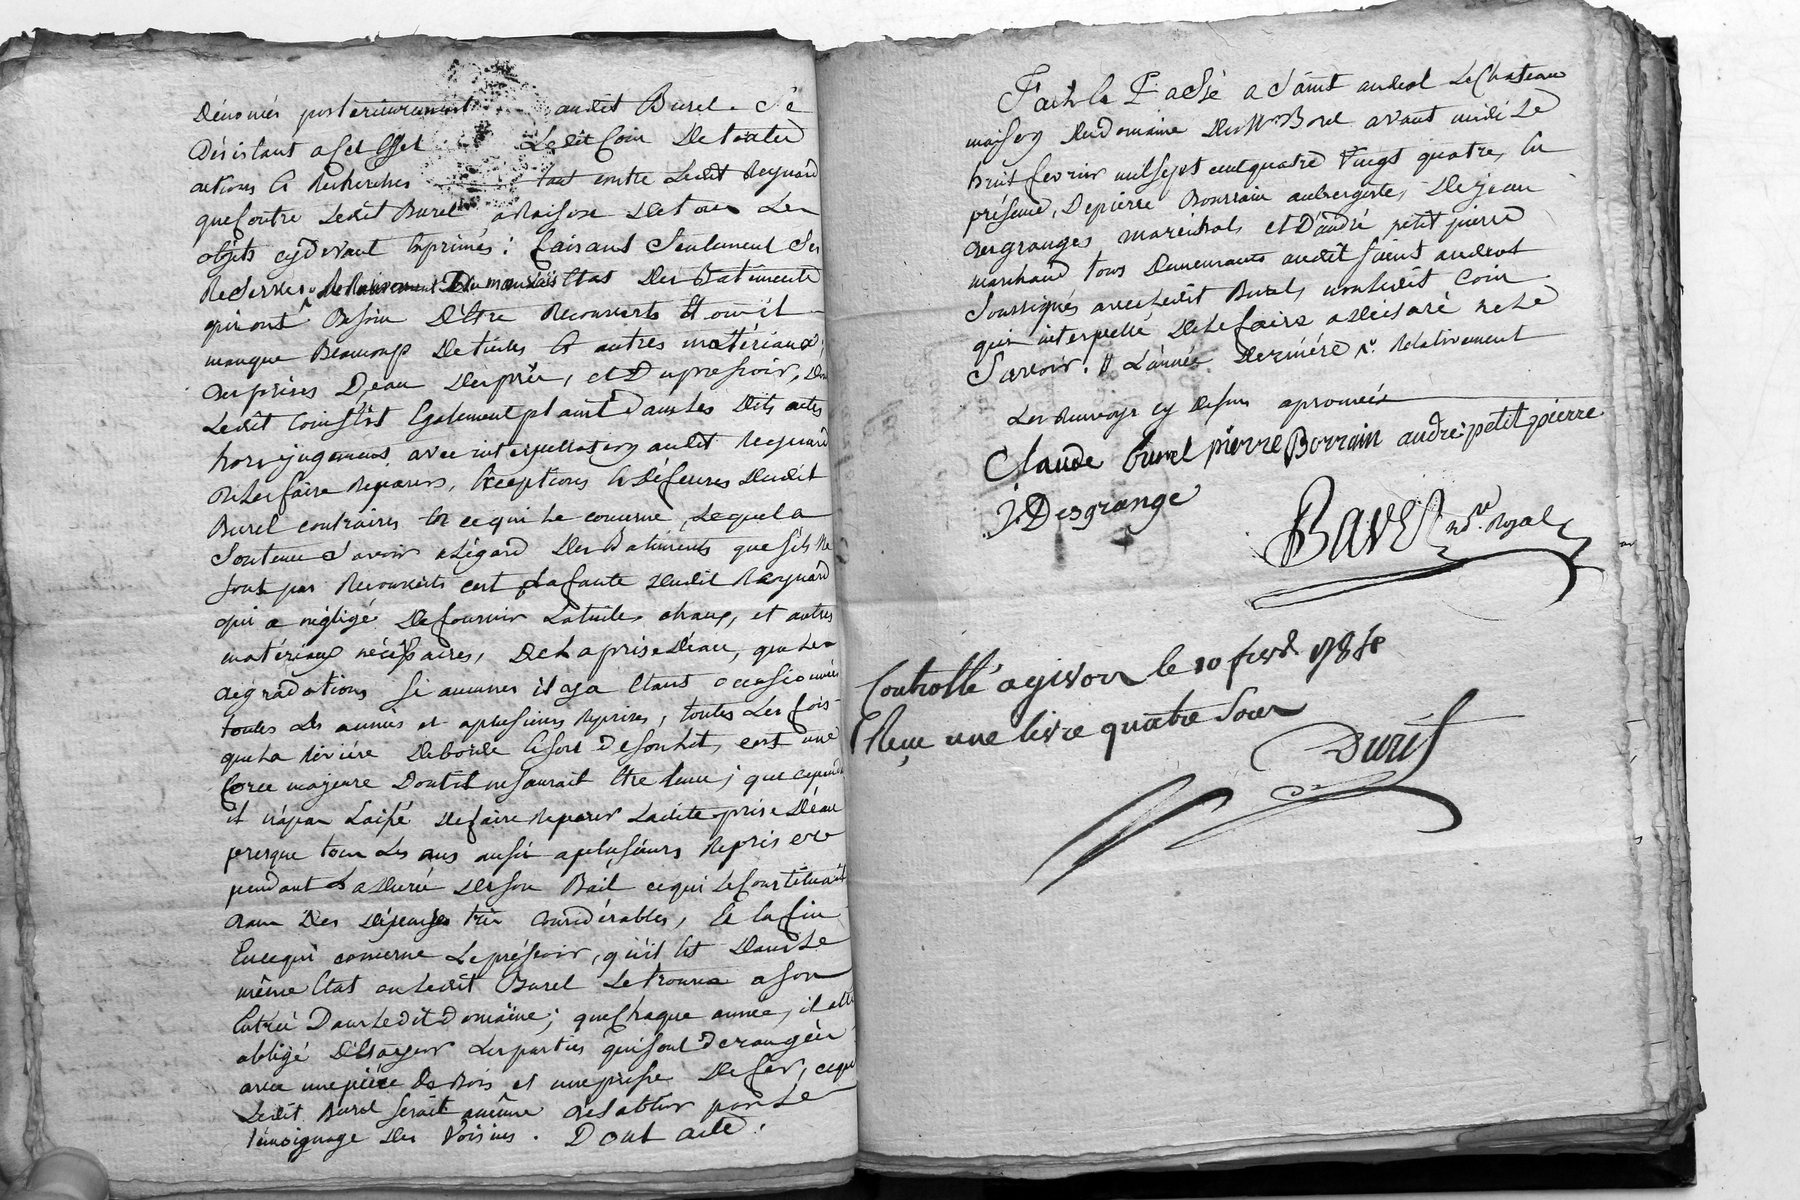 Dénoncés postérieurement audit Burel. Se
Désistant a cet effet Ledit Coin De toutes
actions & Recherches tant contre Ledit Reynard
que Contre Ledit Burel a Raison De tous Les
objets cydevant Exprimés: faisant Seulement Ses
Reserves Du mauvais Etat Des Batiments
qui ont Besoin D'être Recouverts Et ou il
manque Beaucoup De tuiles & autres matériaux,
Des prises D'eau Des prés, et Du pressoir, Dont
Ledit Coin s'est Egalement plaint Dans Les Dits actes
hors jugements avec interpellation audit Reynard
De Les faire Réparer, Exceptions & Défenses Dudit
Burel contraires En ce qui Le concerne, Lequel a
Soutenu Savoir a L'égard Des Batiments que s'ils Ne
sont pas Recouverts c'est La faute Dudit Reynard
qui a négligé De fournir La tuile, chaux, et autres
matériaux nécessaires, De La prise D'eau, que Les
dégradations si aucunes il y a Etant occasionnées
toutes Les années et a plusieurs Reprises, toutes Les fois
que La Riviére Déborde & sort De son Lit, c'est une
force majeure Dont il ne saurait Etre tenu; que cependant
il n'a pas Laissé De faire Reparer Ladite prise D'éau
presque tous Les ans aussi a plusieurs Reprises
pendant La Durée De son Bail ce qui Le Constituait
dans Des Dépenses très Considérables, Et Enfin
En ce qui concerne Le préssoir, qu'il Est Dans Le
même Etat ou Ledit Burel Le trouva a son
Entrée Dans Ledit Domaine; que chaque année, il était
obligé Les parties qui sont Derangées
avec une piéce De Bois et une De fer, ce que
Ledit Burel Serait a même D'établir par Le
témoignage Des Voisins. Dont acte.
Fait & Passé a Saint andeol Le Chateau
maison Du domaine Du Sr Borel avant midi Le
huit fevrier mil sept cent quatre Vingt quatre, En
présence, De pierre Bourrain aubergiste, De jean
desgranges, maréchal, et D'andré petit pierre
marchand tous Demeurants audit Saint andeol
Soussignés avec Ledit Burel, non Ledit Coin
qui interpellé De Le faire a Déclaré ne Le
Savoir. // L'année Derniére Relativement
Les Renvoys cy Dessus aprouvés
Claude burel pierre Borrain andré petit pierre
J. Desgrange
Bavet Nre. Royal
Controllé a givors le 10 fevr. 1784
Reçu une livre quatre Sous
Duris